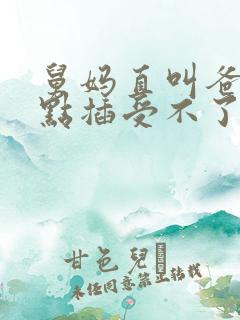 舅妈直叫爸
點插受不了
甘色兒
未任同意禁止转载